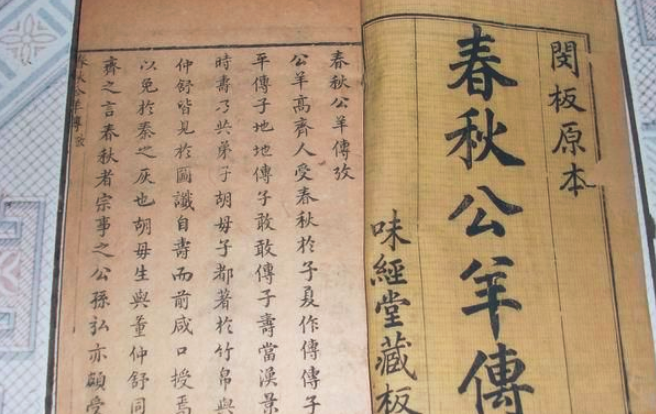 閔板原本
春秋公羊傳
味經堂藏板
春秋公羊傳攷
公羊高齊人受春秋於子夏作傳傳子
平傳子地地傳子敢敢傳子壽當漢景
時壽乃共弟子胡毋子都著於竹帛與
仲舒皆見於圖讖自壽而前咸口授焉
以免於秦之灰也胡毋生與董仲舒同
齊之言春秋者宗事之公孫弘亦頗受
春秋公羊傳